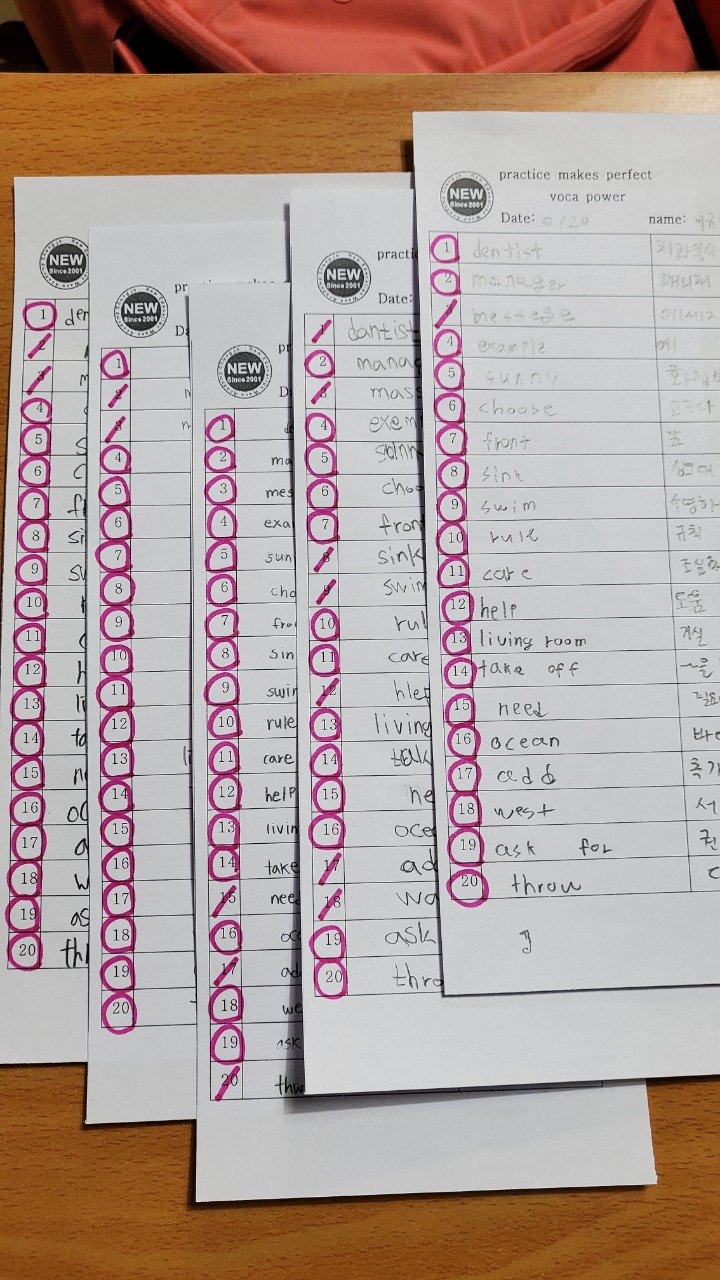 practice makes perfect
voca power
NEW
Since 2001
Date: 6/20 name:
1 dentist
2 manager
3 messege
4 example 예
5 sunny
6 choose 고르다
7 front 표
8 sink
9 swim 수영하
10 rule 규칙
11 care 조심
12 help 도움
13 living room 거실
14 take off ~을
15 need 필요
16 ocean 바
17 add 추가
18 west 서
19 ask for
20 throw
practi
NEW
Since 2001
Date:
1 dantist
2 manag
3 mass
4 exem
5 sdnn
6 choo
7 fron
8 sink
9 swim
10 rul
11 care
12 hlep
13 living
14 teak
15 ne
16 oce
17 ad
18 wa
19 ask
20 thro
pr
NEW
Since 2001
D
1 de
2 ma
3 mes
4 exa
5 sun
6 cho
7 fro
8 sin
9 swim
10 rule
11 care
12 help
13 livin
14 take
15 nee
16 oc
17 ad
18 we
19 ask
20 thw
pr
NEW
Since 2001
D
1
2 m
3 m
4
5
6
7
8
9
10
11
12
13 li
14
15
16
17
18
19
20
NEW
Since 2001
1 den
2
3 m
4
5 s
6 c
7 f
8 si
9 sw
10
11 c
12 h
13 li
14 ta
15 n
16 oc
17 a
18 w
19 as
20 th